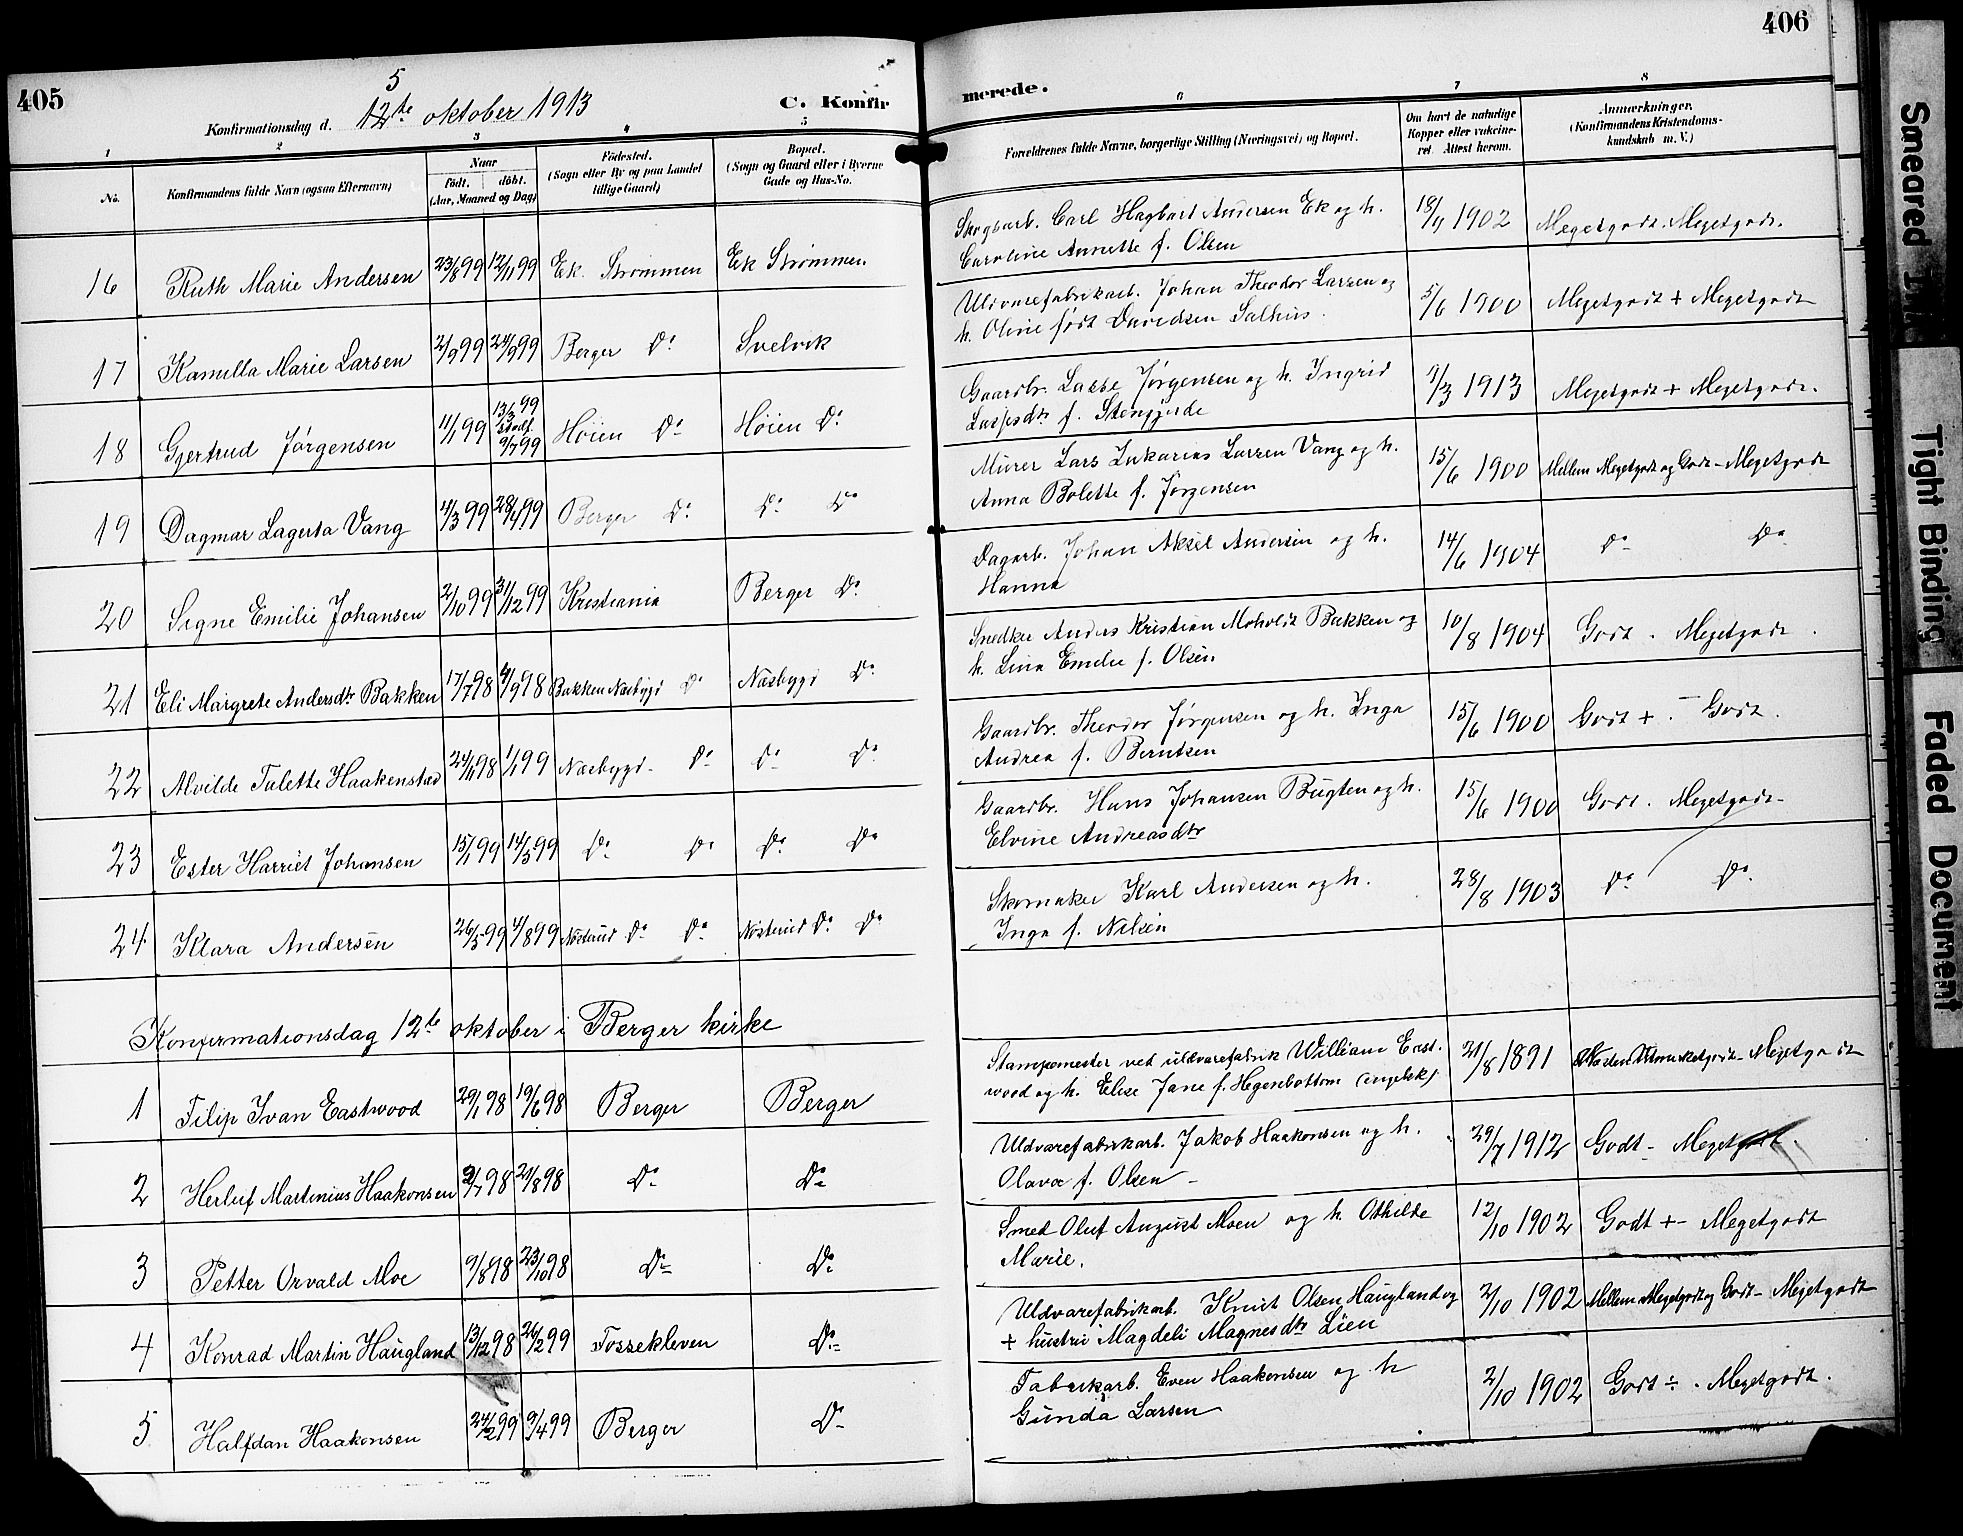 405
5
Konfirmationsdag d. 12te oktober 1913
C. Konfir
1 2 3 4 5
No.
Konfirmandens fulde Navn (ogsaa Efternavn)
Naar
født. døbt.
(Aar, Maaned og Dag)
Fødested.
(Sogn eller By og paa Landet
tillige Gaard)
Bopæl.
(Sogn og Gaard eller i Byerne
Gade og Hus-No.
16 Ruth Marie Andersen 23/8 99 12/11 99 Ek Strømmen Ek Strømmen
17 Kamilla Marie Larsen 2/9 99 24/9 99 Berger Do Svelvik
18 Gjertrud Jørgensen 11/1 99 13/3 99 stadf. 9/7 99 Høien Do Høien Do
19 Dagmar Lagerta Vang 14/3 99 28/4 99 Berger Do Do Do
20 Signe Emilie Johansen 2/10 99 31/12 99 Kristiania Berger Do
21 Eli Margrete Andersdtr Bakken 17/7 98 4/9 98 Bakken Næsbygd Do Næsbygd Do
22 Alvilde Talette Haakenstad 24/11 98 1/1 99 Næsbygd Do Do Do
23 Ester Harriet Johansen 15/1 99 14/5 99 Do Do Do Do
24 Klara Andersen 26/5 99 4/8 99 Nøsterud Do Do Nøsterud Do Do
Konfirmationsdag 12te oktober i Berger kirke
1 Filip Ivan Eastwood 29/1 98 19/6 98 Berger Berger
2 Herluf Martinius Haakonsen 2/7 98 21/8 98 Do Do
3 Petter Orvald Moe 9/8 98 23/10 98 Do Do
4 Konrad Martin Haugland 13/12 98 26/2 99 Fossekleven Do
5 Halfdan Haakonsen 24/2 99 9/4 99 Berger Do
406
merede.
6 7 8
Forældrenes fulde Navne, borgerlige Stilling (Næringsvei) og Bopæl.
Om havt de naturlige
Kopper eller vakcine-
ret Attest herom.
Anmærkninger.
(Konfirmandens Kristendoms-
kundskab m. V.)
Skogsarb. Carl Hagbart Andersen Ek og h. 18/11 1902 Megetgodt. Megetgodt.
Caroline Annette f. Olsen
Uldvarefabrikarb. Johan Theodor Larsen og 5/6 1900 Megetgodt + Megetgodt
h. Oline født Davidsen Salhus.
Gaardbr. Lasse Jørgensen og h. Ingrid 1/3 1913 Megetgodt + Megetgodt.
Lassesdtr f. Stengjerde
Murer Lars Zakarias Larsen Vang og h. 15/6 1900 Mellem Megetgodt og Godt - Megetgodt
Anna Bolette f. Jørgensen
Dagarb. Johan Aksel Andersen og h. 14/6 1904 Do Do
Hanna
Snedker Anders Kristian Moholdt Bakken og 10/8 1904 Godt - Megetgodt.
h. Lina Emelie f. Olsen
Gaardbr. Theodor Jørgensen og h. Inga 15/6 1900 Godt + . - Godt.
Andrea f. Berntsen
Gaardbr. Hans Johansen Bugten og h. 15/6 1900 Godt. Megetgodt-
Elvine Andreasdtr
Skomaker Karl Andersen og h. 28/8 1903 Do Do
Inga f. Nilsen
Stampemester ved uldvarefabrik William East- 21/8 1891 Næsten Udmerketgodt - Megetgodt
wood og h. Elise Jane f. Hegenbottom (engelsk)
Uldvarefabrikarb. Jakob Haakonsen og h. 29/7 1912 Godt - Megetgodt.
Olava f. Olsen -
Smed Oluf August Moen og h. Othilde 12/10 1902 Godt + - Megetgodt
Marie.
Uldvarefabrikarb. Knut Olsen Haugland og 2/10 1902 Mellem Megetgodt og Godt - Megetgodt
+ hustru Magdeli Magnesdtr Lien
Fabrikarb. Even Haakonsen og h 2/10 1902 Godt ÷ . Megetgodt.
Gunda Larsen
Smeared
Tight Binding
Faded Document